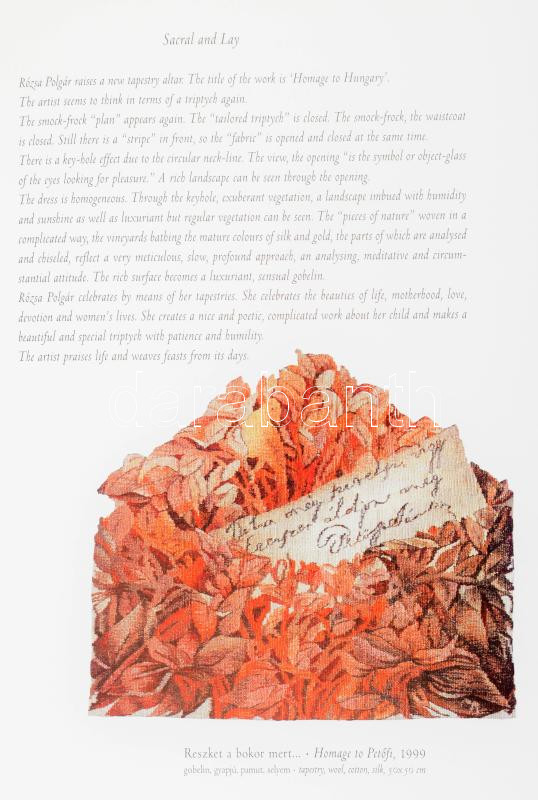 Sacral and Lay
Rózsa Polgár raises a new tapestry altar. The title of the work is ‘Homage to Hungary’.
The artist seems to think in terms of a triptych again.
The smock-frock “plan” appears again. The “tailored triptych” is closed. The smock-frock, the waistcoat
is closed. Still there is a “stripe” in front, so the “fabric” is opened and closed at the same time.
There is a key-hole effect due to the circular neck-line. The view, the opening “is the symbol or object-glass
of the eyes looking for pleasure.” A rich landscape can be seen through the opening.
The dress is homogeneous. Through the keyhole, exuberant vegetation, a landscape imbued with humidity
and sunshine as well as luxuriant but regular vegetation can be seen. The “pieces of nature” woven in a
complicated way, the vineyards bathing the mature colours of silk and gold, the parts of which are analysed
and chiseled, reflect a very meticulous, slow, profound approach, an analysing, meditative and circum-
stantial attitude. The rich surface becomes a luxuriant, sensual gobelin.
Rózsa Polgár celebrates by means of her tapestries. She celebrates the beauties of life, motherhood, love,
devotion and women’s lives. She creates a nice and poetic, complicated work about her child and makes a
beautiful and special triptych with patience and humility.
The artist praises life and weaves feasts from its days.
darabanth
meg
Reszket a bokor mert... • Homage to Petőfi, 1999
gobelin, gyapjú, pamut, selyem • tapestry, wool, cotton, silk, 50x50 cm